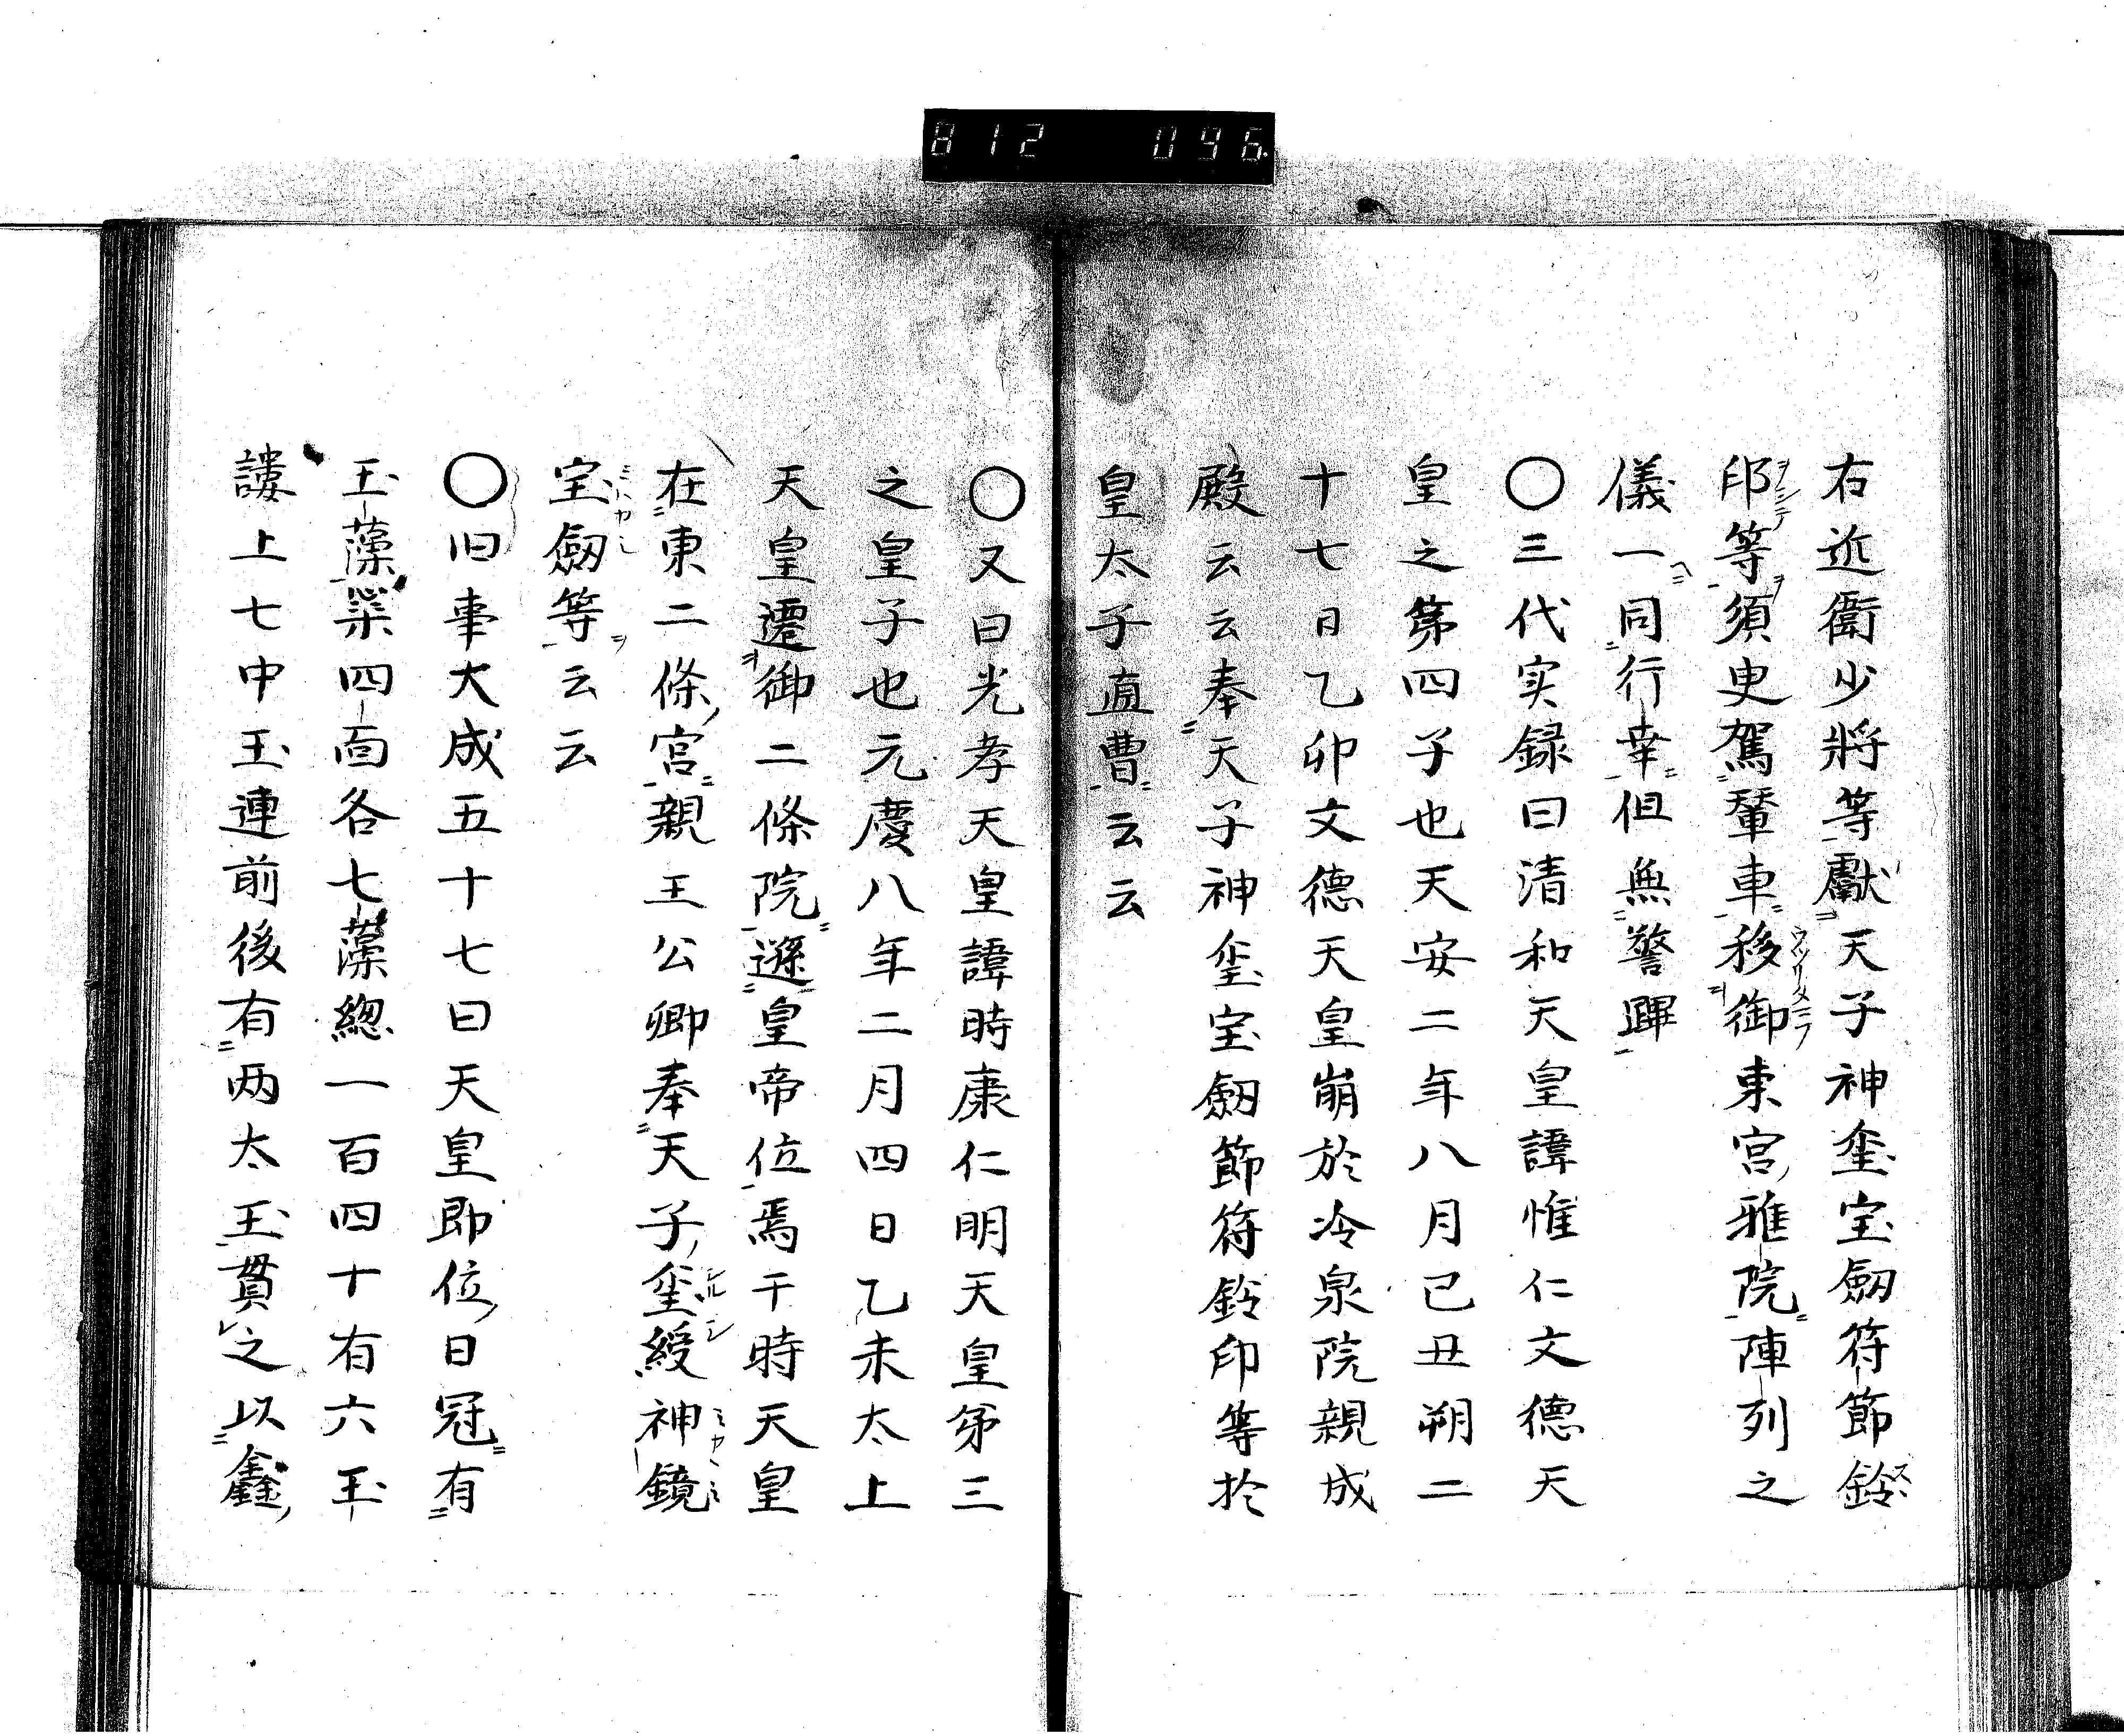 812 046
右近衛少將等獻天子神璽宝劔符節鈴
印等須史駕輦車移御東宮雅院陣列之
儀一同行幸但無警蹕
〇三代実録曰清和天皇諱惟仁文德天
皇之第四子也天安二年八月己丑朔二
十七日乙卯文德天皇崩於冷泉院親成
殿云云奉天子神璽宝劔節符鈴印等於
皇太子直曹云云
〇又曰光孝天皇諱時康仁明天皇第三
之皇子也元慶八年二月四日乙未太上
天皇遷御二條院遜皇帝位焉于時天皇
在東二條宮親王公卿奉天子璽綬神鏡
宝劔等云云
〇旧事大成五十七曰天皇即位日冠有
玉藻菜四面各七藻總一百四十有六玉
謱上七中玉連前後有两太玉貫之以鑫